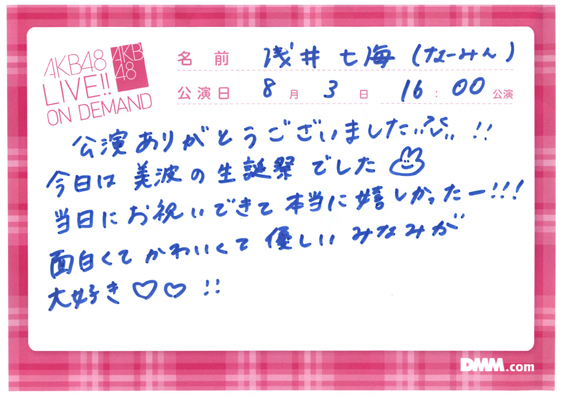 AKB48
LIVE!!
ON DEMAND
AKB
48
名前 浅井七海(なーみん)
公演日 8月3日 16:00公演
公演ありがとうございました!!
今日は美波の生誕祭でした
当日にお祝いできて本当に嬉しかったー!!!
面白くてかわいくて優しいみなみが
大好き♡♡!!
DMM.com